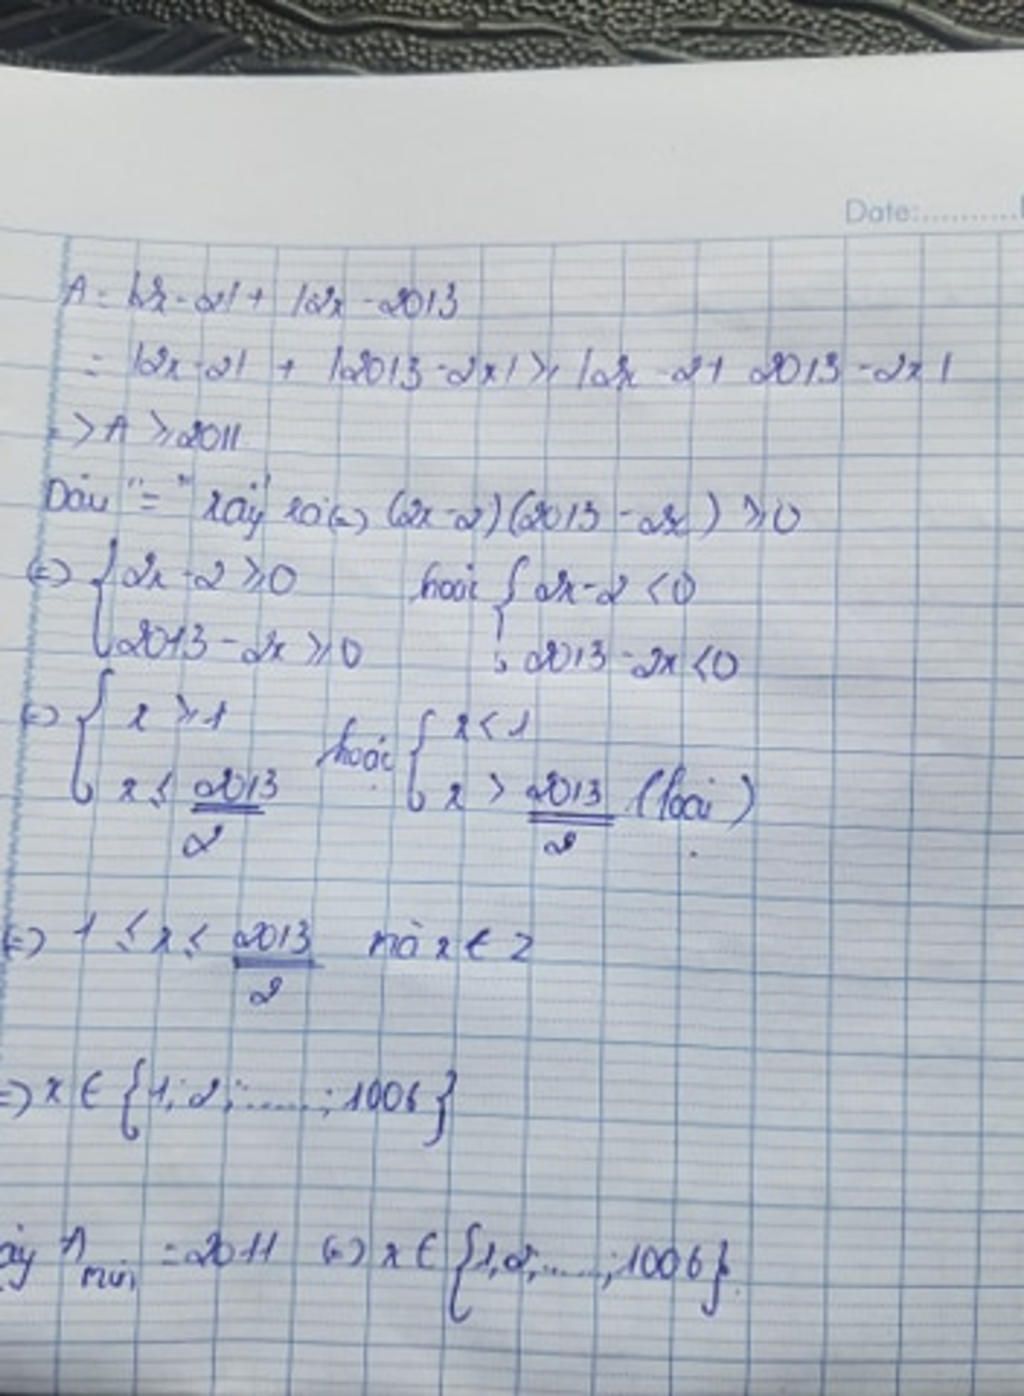 Date:..........
A = |2x - 2| + |2x - 2013
= |2x - 2| + |2013 - 2x| ≥ |2x - 2 + 2013 - 2x|
=> A ≥ 2011
Dấu "=" xảy ra (=) (2x-2)(2013 - 2x) ≥ 0
(=) { 2x - 2 ≥ 0 hoặc { 2x - 2 < 0
2013 - 2x ≥ 0 2013 - 2x < 0
(=) { x ≥ 1 hoặc { x < 1
x ≤ 2013/2 x > 2013/2 (loại)
(=) 1 ≤ x ≤ 2013/2 mà x ∈ Z
=) x ∈ {1; 2; ......; 1006}
ậy A min = 2011 (=) x ∈ {1, 2, ......; 1006}.